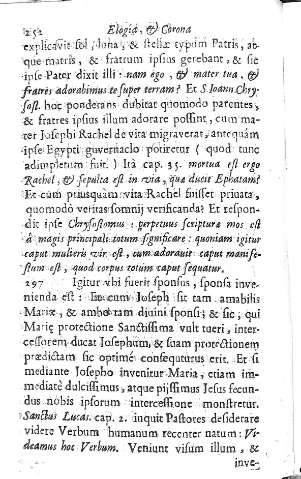 252 Elogia, & Corona
explicavit sol, luna, & stellæ typum Patris, at-
que matris, & fratrum ipsius gerebant, & sic
ipse Pater dixit illi: nam ego, & mater tua, &
fratres adorabimus te super terram? Et S. Ioann Chry-
sost. hoc ponderans dubitat quomodo parentes,
& fratres ipsius illum adorare possint, cum ma-
ter Josephi Rachel de vita migraverat, antequàm
ipse Egypti guvernaclo potiretur ( quod tunc
adimpletum fuit. ) Ità cap. 35. mortua est ergo
Rachel, & sepulta est in via, quæ ducit Ephatam?
Et cùm priusquàm vita Rachel fuisset privata,
quomodò veritas somnij verificanda? Et respon-
dit ipse Chrysostomus: perpetuus scripturæ mos est
à magis principali totum significare: quoniam igitur
caput mulieris vir est, cum adoravit caput manife-
stum est, quod corpus totum caput sequatur.
297 Igitur ubi fuerit sponsus, sponsa inve-
nienda est: Joseph sit tam amabilis
Mariæ, & amborum divini sponsi; & sic, qui
Mariæ protectione Sanctissima vult tueri, inter-
cessorem ducat Josephum, & suam protectionem
prædictam sic optimè consequturus erit. Et si
mediante Josepho invenitur Maria, etiam im-
mediatè dulcissimus, atque pijssimus Jesus fecun-
dus nobis ipsorum intercessione monstretur.
Sanctus Lucas. cap. 2. inquit Pastores desiderare
videre Verbum humanum recenter natum: Vi-
deamus hoc Verbum. Veniunt visum illum, &
inve-